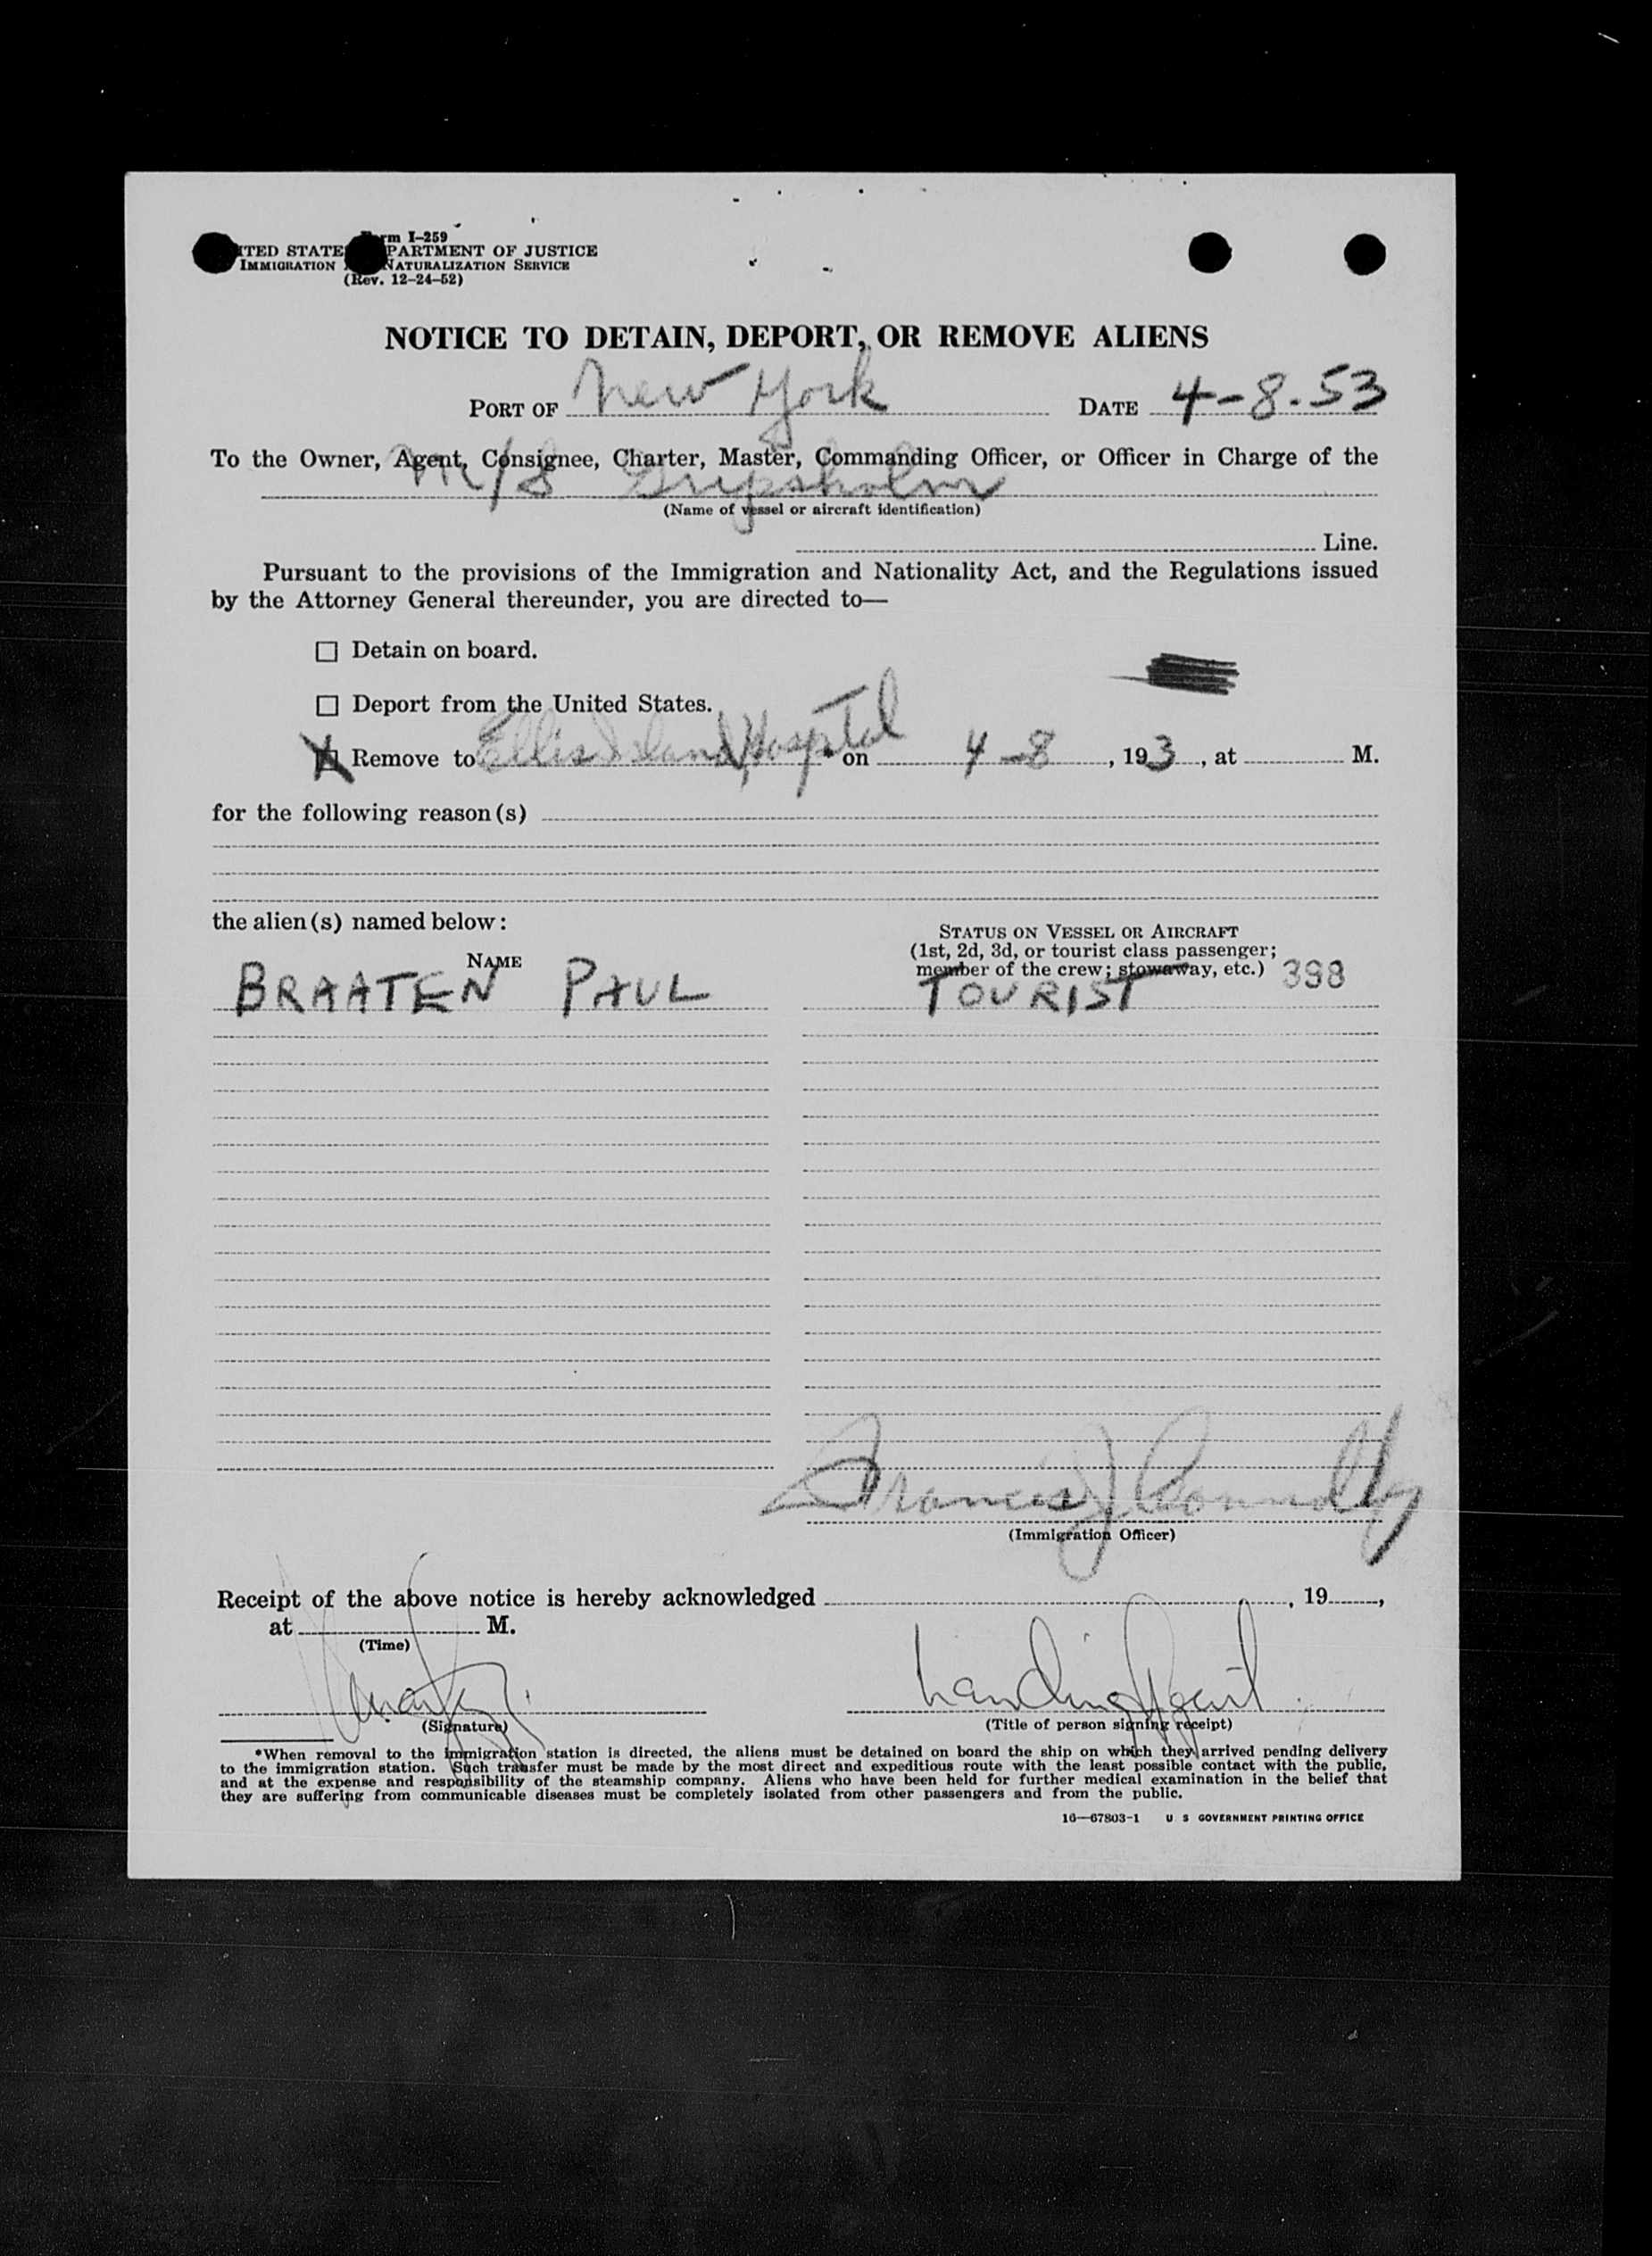 Form I-259
UNITED STATES DEPARTMENT OF JUSTICE
IMMIGRATION AND NATURALIZATION SERVICE
(Rev. 12-24-52)
NOTICE TO DETAIN, DEPORT, OR REMOVE ALIENS
PORT OF New York DATE 4-8-53
To the Owner, Agent, Consignee, Charter, Master, Commanding Officer, or Officer in Charge of the
M/S Gripsholm
(Name of vessel or aircraft identification)
Line.
Pursuant to the provisions of the Immigration and Nationality Act, and the Regulations issued
by the Attorney General thereunder, you are directed to—
☐ Detain on board.
☐ Deport from the United States.
☒ Remove to Ellis Island Hospital * on 4-8, 193, at M.
for the following reason(s)
the alien(s) named below:
STATUS ON VESSEL OR AIRCRAFT
(1st, 2d, 3d, or tourist class passenger;
NAME member of the crew; stowaway, etc.) 398
BRAATEN PAUL TOURIST
Francis J Connolly
(Immigration Officer)
Receipt of the above notice is hereby acknowledged , 19 ,
at M.
(Time)
Landing Agent
(Signature) (Title of person signing receipt)
*When removal to the immigration station is directed, the aliens must be detained on board the ship on which they arrived pending delivery
to the immigration station. Such transfer must be made by the most direct and expeditious route with the least possible contact with the public,
and at the expense and responsibility of the steamship company. Aliens who have been held for further medical examination in the belief that
they are suffering from communicable diseases must be completely isolated from other passengers and from the public.
16—67803-1 U S GOVERNMENT PRINTING OFFICE